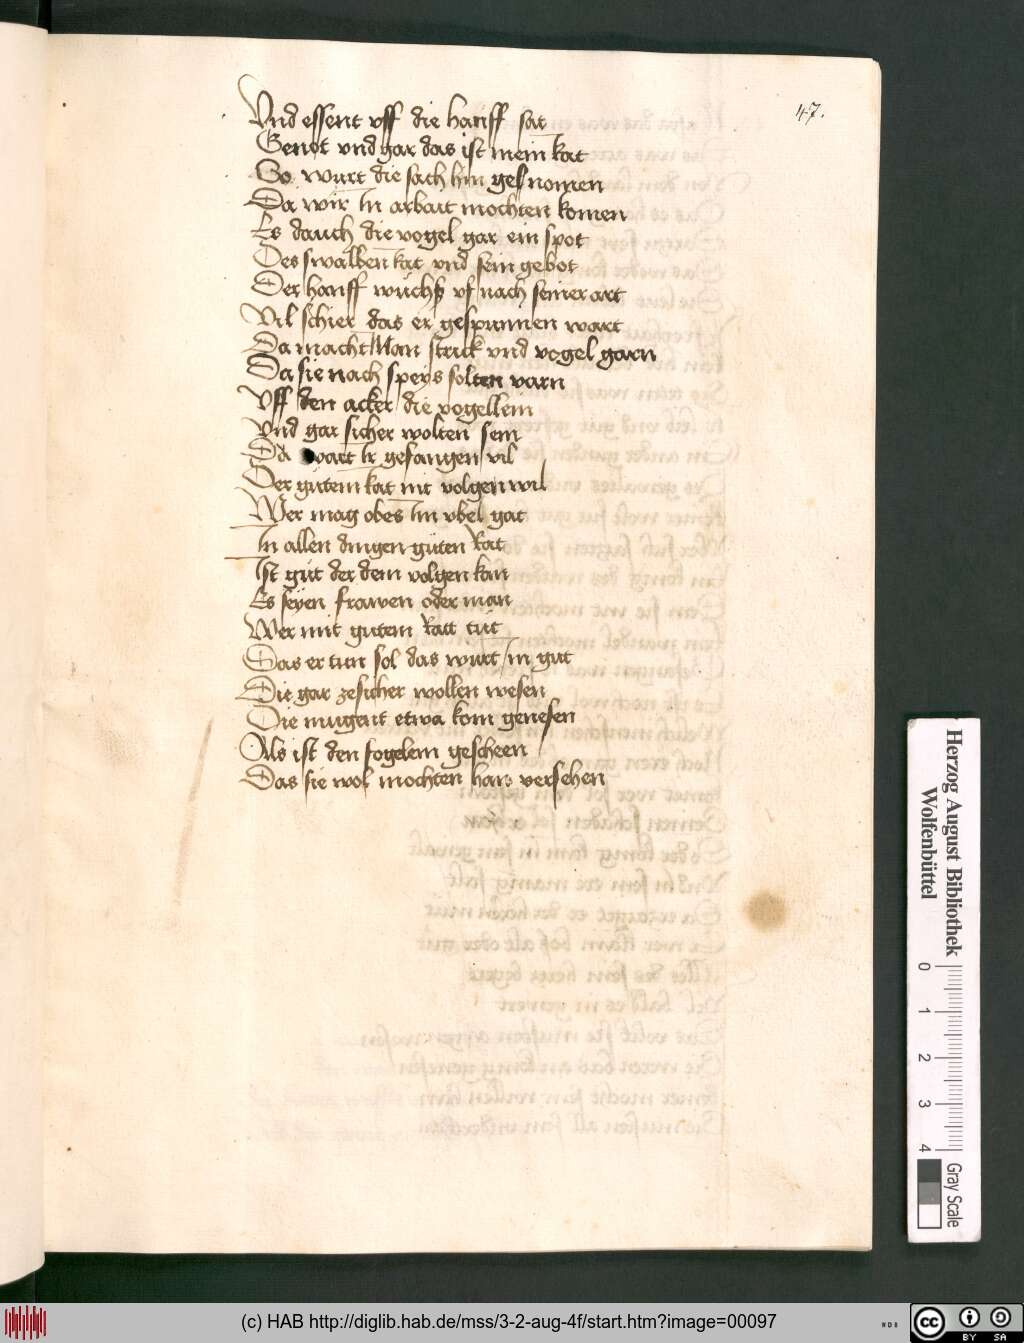 47.
Vnd essent vff die hanff sat
Genot vnd gar das ist mein Rat
So wurt die sach hin genomen
Da wir In arbait mochten komen
Es dauch die vogel gar ein spot
Des swalben Rat vnd sein gebot
Der hanff wuchß vf nach seiner art
Vil schier das er gespunnen wart
Da macht Man strick vnd vogel garn
Da sie nach speys solten varn
Vff den acker die vogellein
Vnd gar sicher wolten sein
Da wart Ir gefangen vil
Der gutem Rat nit volgen wil
Wer mag obes Im vbel gat
In allen dingen guten Rat
Ist gut der dem volgen kan
Es seyen frawen oder man
Wer mit gutem Ratt tut
Das er tun sol das wurt Im gut
Die gar zesicher wollen wesen
Die mugent etwa kom genesen
Als ist den fogelein gescheen
Das sie wol mochten han versehen
Herzog August Bibliothek
Wolfenbüttel
0 1 2 3 4
Gray Scale
(c) HAB http://diglib.hab.de/mss/3-2-aug-4f/start.htm?image=00097
WDB
cc BY SA